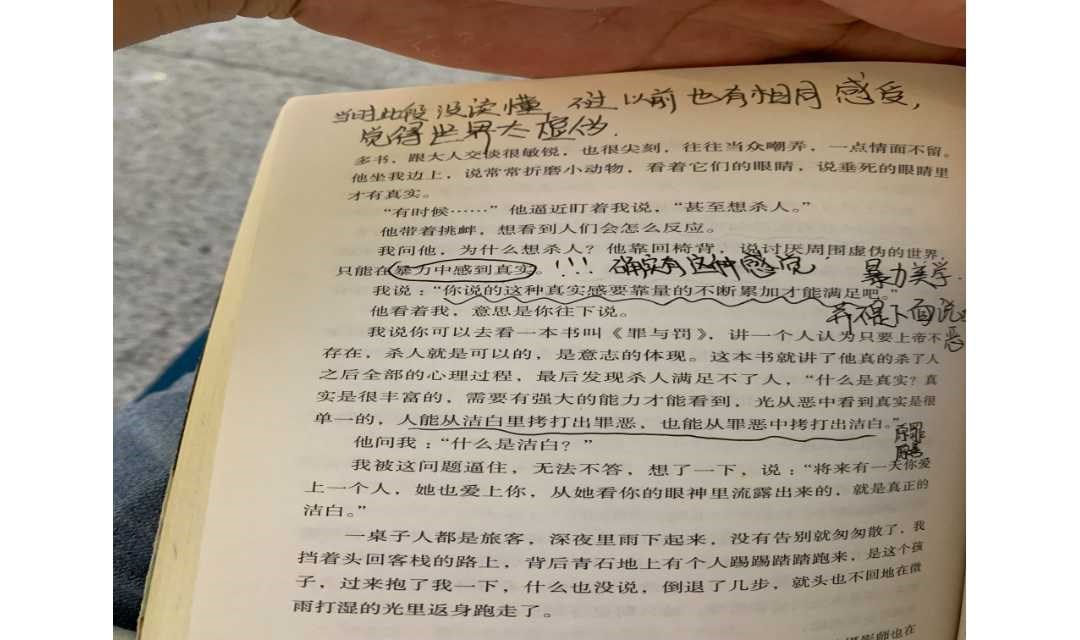 当时此段没读懂，不过以前也有相同感受，
觉得世界太虚伪.
多书，跟大人交谈很敏锐，也很尖刻，往往当众嘲弄，一点情面不留。
他坐我边上，说常常折磨小动物，看着它们的眼睛，说垂死的眼睛里
才有真实。
“有时候……”他逼近盯着我说，“甚至想杀人。”
他带着挑衅，想看到人们会怎么反应。
我问他，为什么想杀人？他靠回椅背，说讨厌周围虚伪的世界，
只能在暴力中感到真实。!!! 确实有这种感觉 暴力美学.
我说：“你说的这种真实感要靠量的不断累加才能满足吧。”
他看着我，意思是你往下说。
我说你可以去看一本书叫《罪与罚》，讲一个人认为只要上帝不
存在，杀人就是可以的，是意志的体现。这本书就讲了他真的杀了人
之后全部的心理过程，最后发现杀人满足不了人，“什么是真实？真
实是很丰富的，需要有强大的能力才能看到，光从恶中看到真实是很
单一的，人能从洁白里拷打出罪恶，也能从罪恶中拷打出洁白。”
原罪
他问我：“什么是洁白？”
我被这问题逼住，无法不答，想了一下，说：“将来有一天你爱
上一个人，她也爱上你，从她看你的眼神里流露出来的，就是真正的
洁白。”
一桌子人都是旅客，深夜里雨下起来，没有告别就匆匆散了，我
挡着头回客栈的路上，背后青石地上有个人踢踢踏踏跑来，是这个孩
子，过来抱了我一下，什么也没说，倒退了几步，就头也不回地在微
雨打湿的光里返身跑走了。
摄影师也在